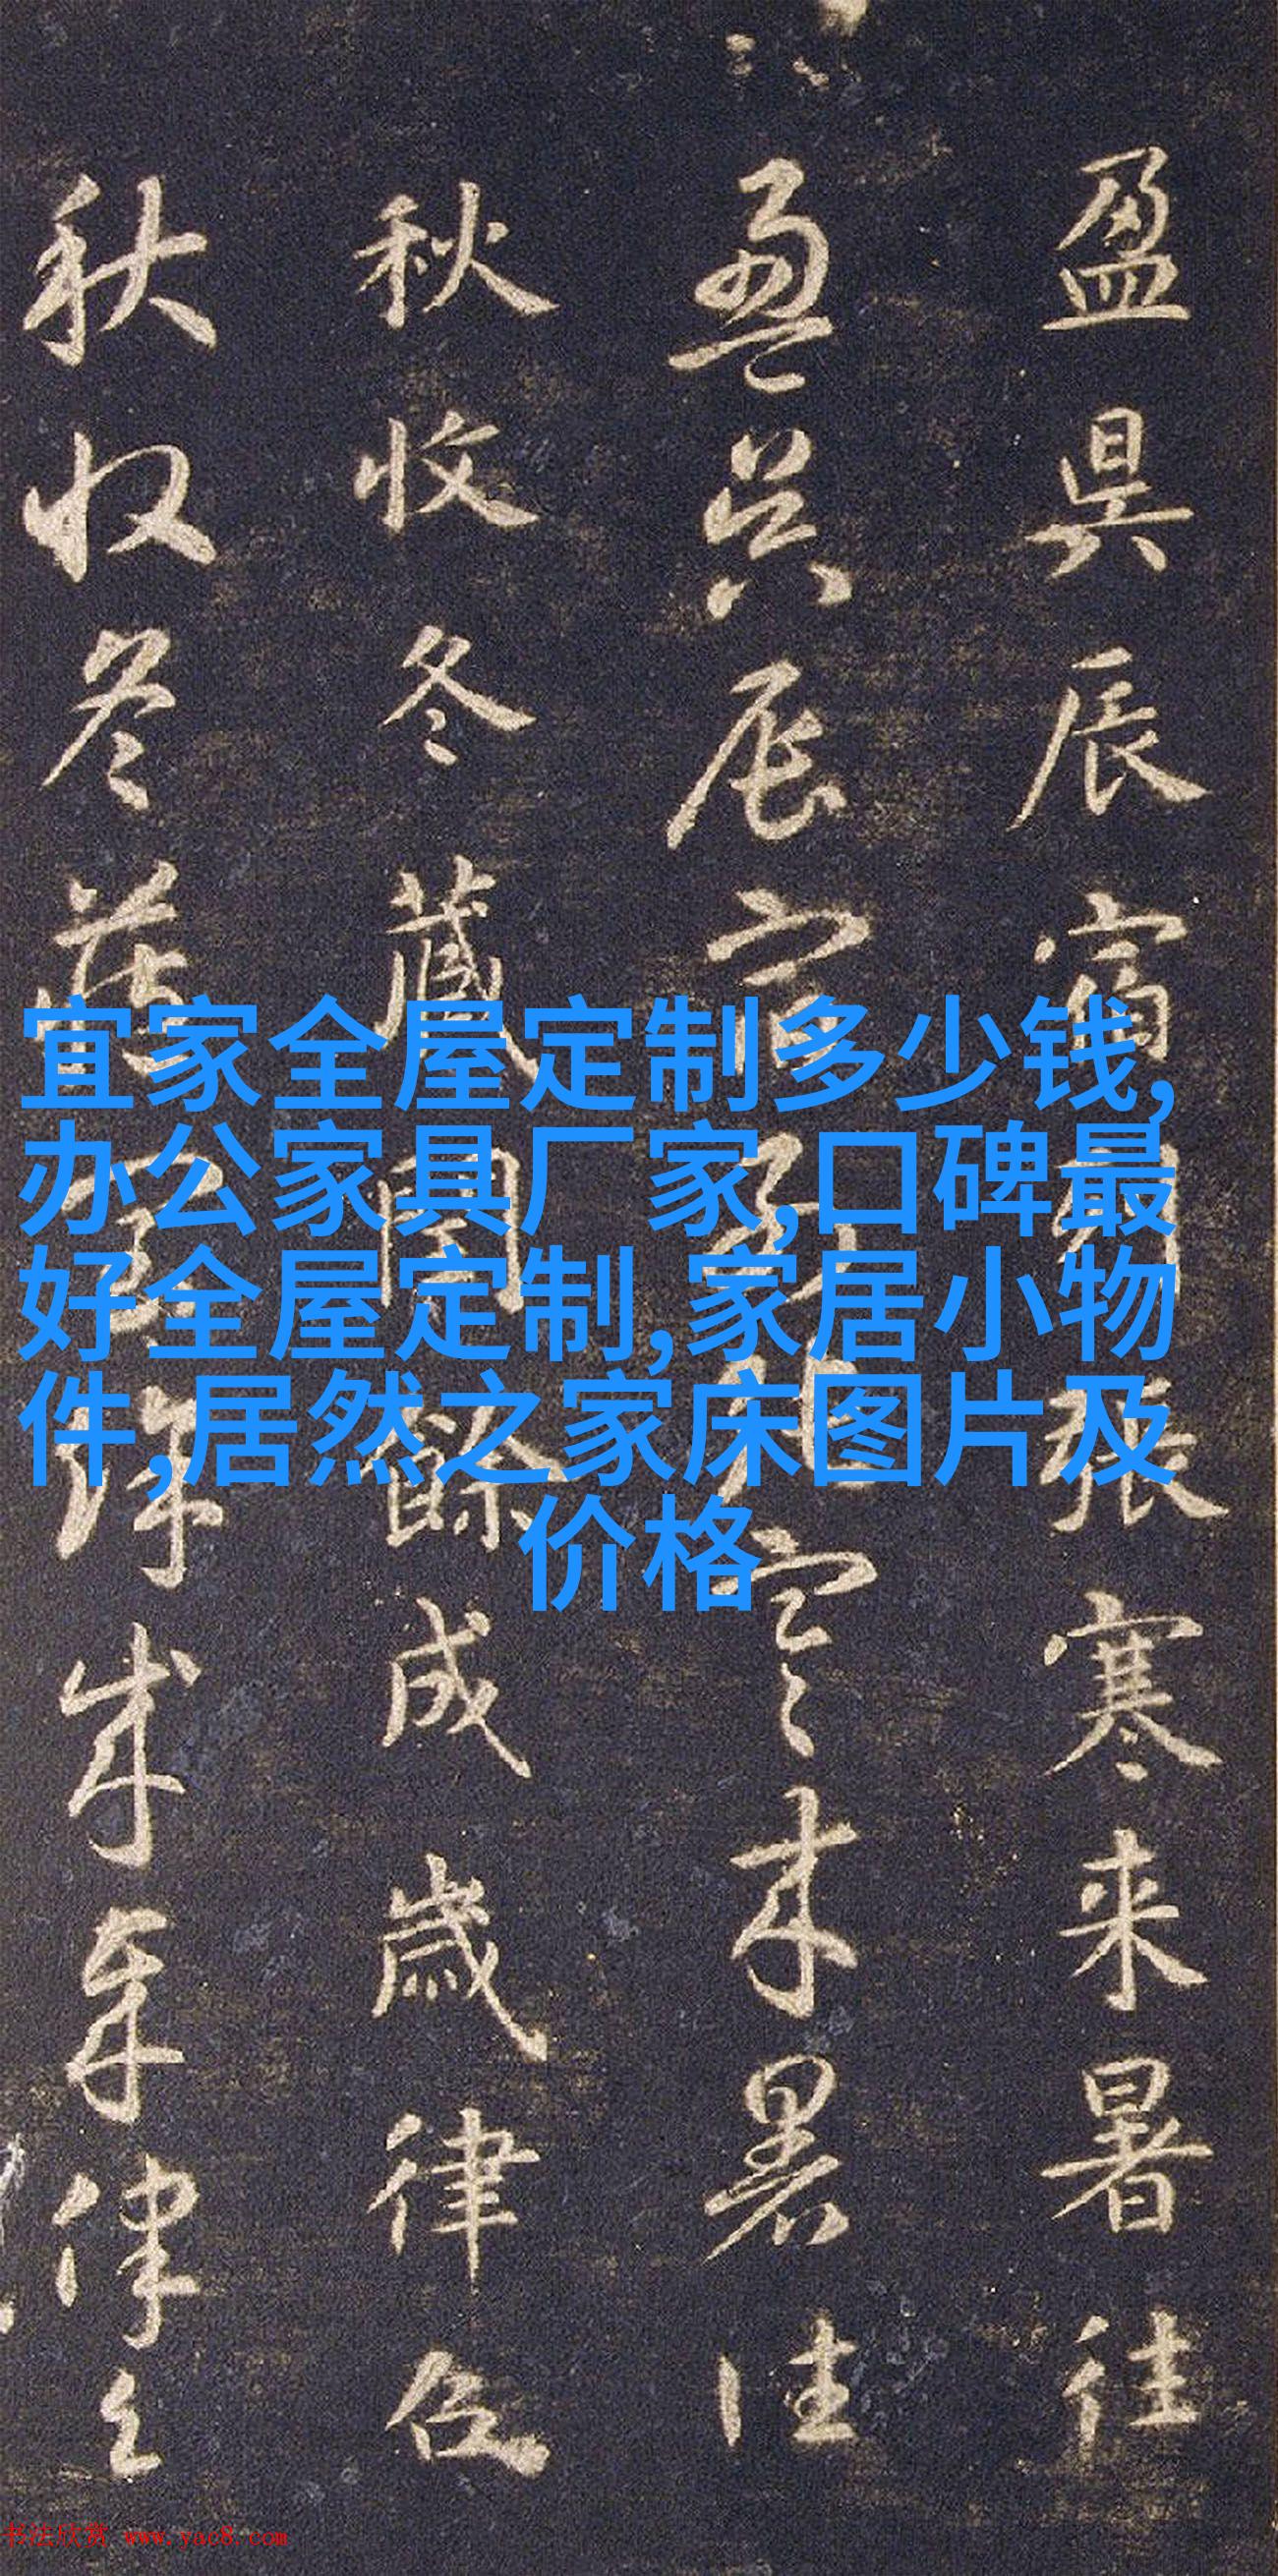 盈昃辰宿列張寒来暑往
盈昃辰宿列張寒来暑往
秋收冬藏閏餘成歲律召
秋收冬藏閏餘成歲律召
宜家全屋定制多少钱,
办公家具厂家,口碑最
好全屋定制,家居小物
件,居然之家床图片及
价格
书法欣赏 www.yac8.com